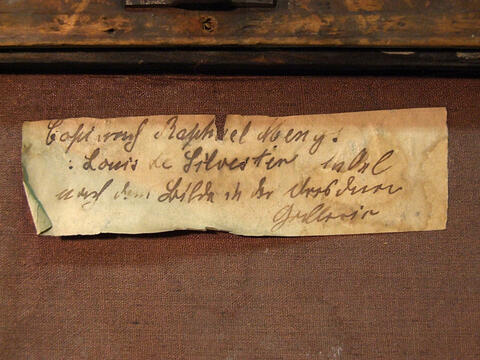 Copie nach Raphael Mengs.
: Louis de Silvester
nach dem Bilde in der Dresdner
Gallerie